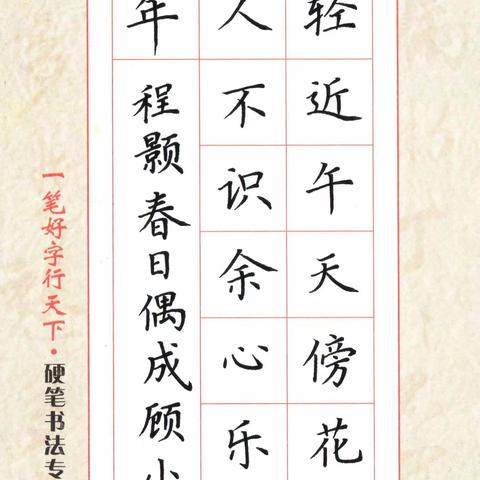 轻近午天傍花
人不识余心乐
年
程颢春日偶成顾小
一笔好字行天下·硬笔书法专